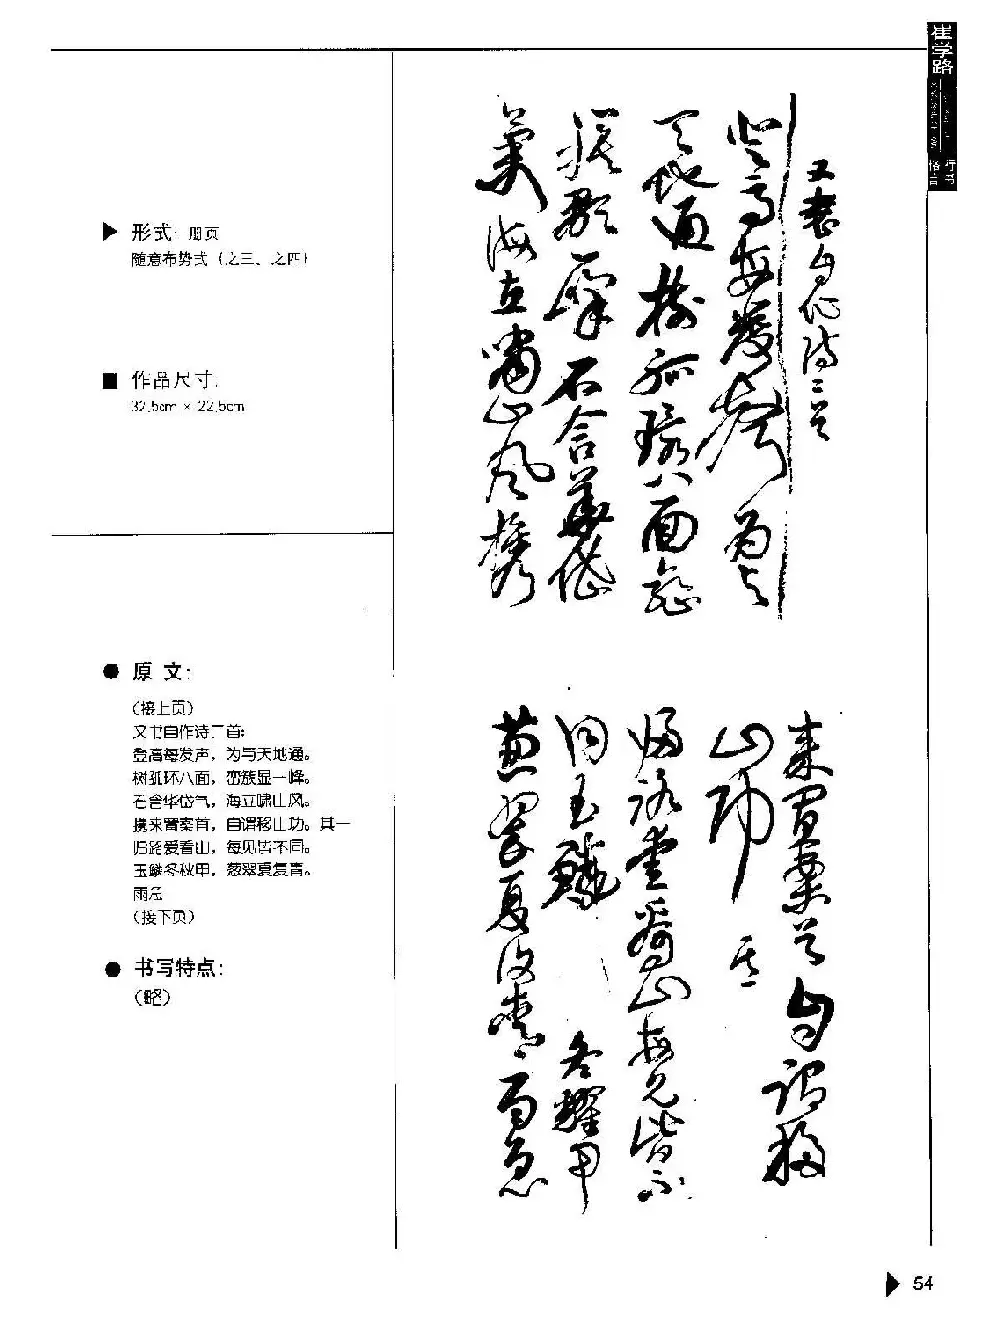 崔学路
行书
格言
▶ 形式: 册页
随意布势式（之三、之四）
■ 作品尺寸:
32.5cm × 22.5cm
● 原 文:
（接上页）
又廿自作诗二首:
登高每发声，为与天地通。
树孤环八面，峦簇显一峰。
石含华岱气，海立啸山风。
携来置案首，自谓移山功。其一
归路爱看山，每见皆不同。
玉鳞冬秋甲，葱翠夏复青。
雨忽
（接下页）
● 书写特点:
（略）
又 自作诗二首
登高每发声 为与
天地通 树孤环八面 峦
簇 显一峰 石含华岱
气 海立啸山风 携
来置案首 自谓移
山功 其一
归路爱看山 每见皆不
同 玉鳞 冬 甲
葱翠夏复青 雨忽
▶ 54